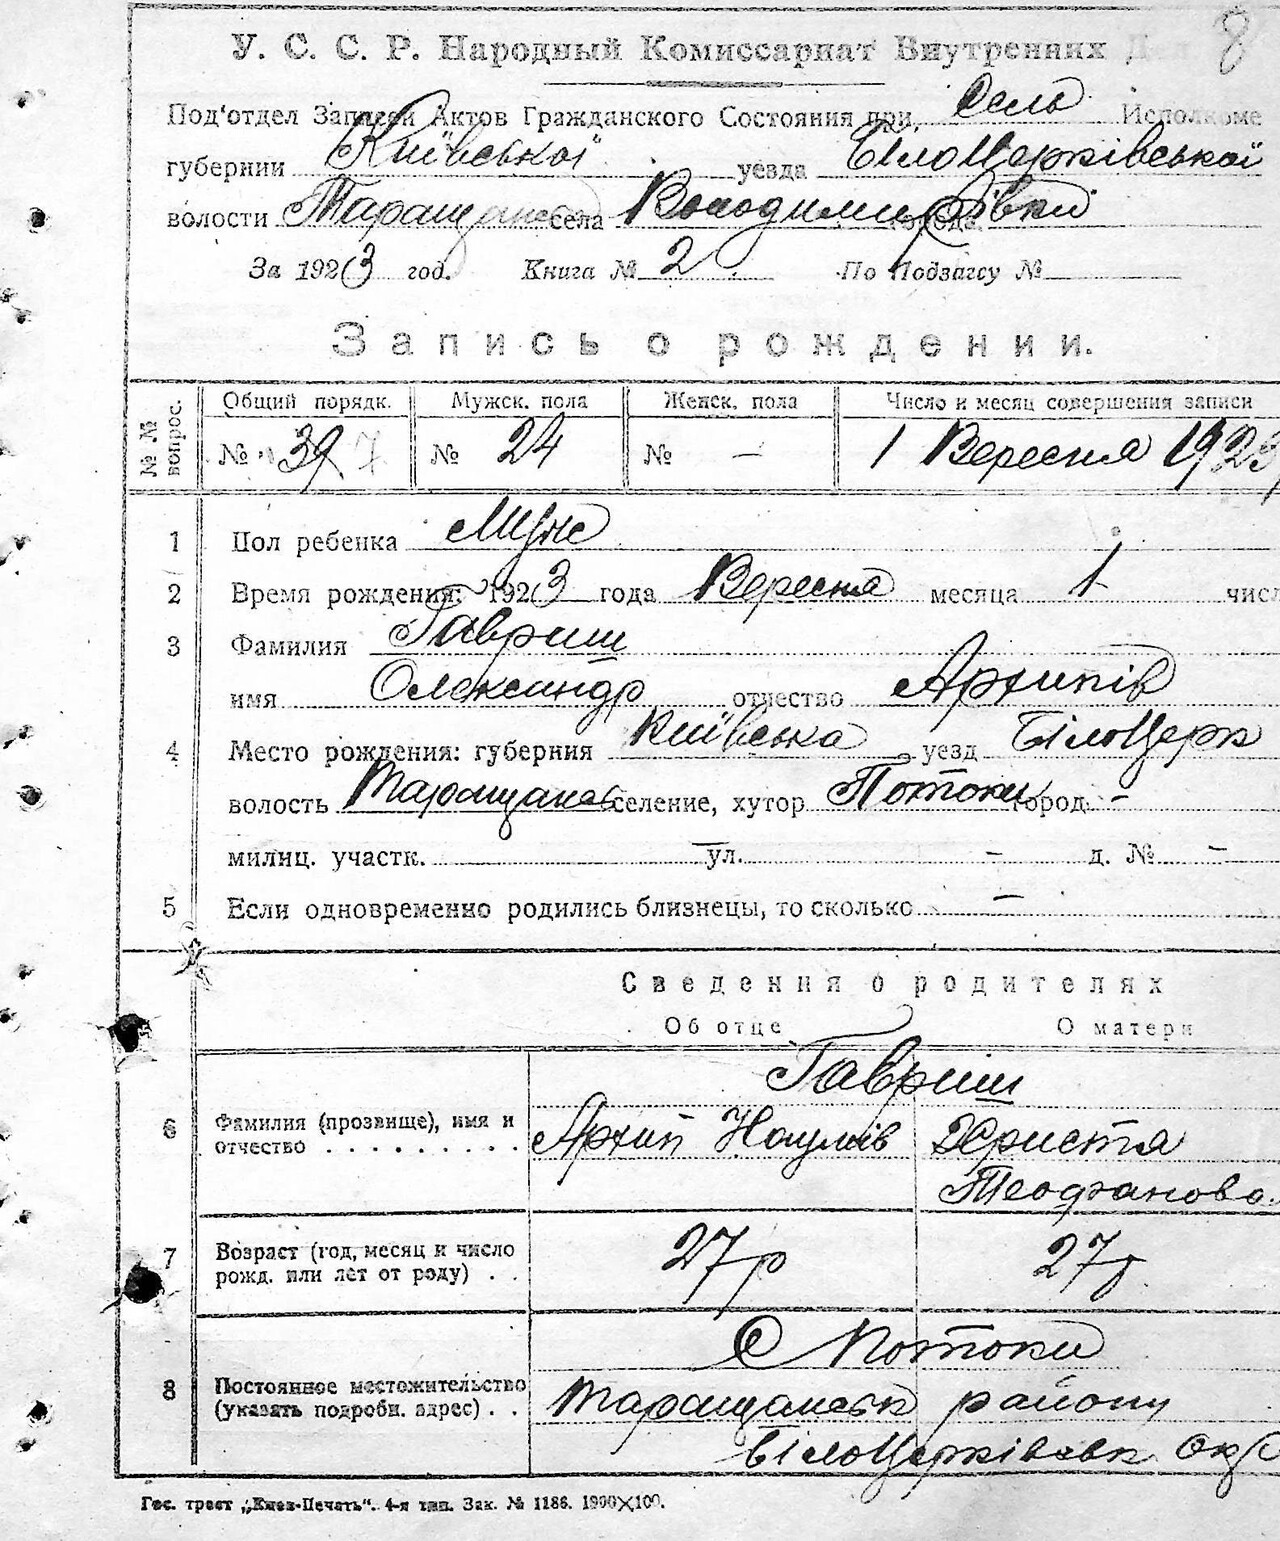 8
У. С. С. Р. Народный Комиссариат Внутренних Дел
Под'отдел Записей Актов Гражданского Состояния при Сель Исполкоме
губернии Київської уезда БілоЦерківської
волости Таращанск села Володимирівки города
За 1923 год. Книга № 2 По Подзагсу №
Запись о рождении.
№ № вопрос. Общий порядк. Мужск. пола Женск. пола Число и месяц совершения записи
№ 39 7 № 24 № - 1 Вересня 1923
1 Пол ребенка Муж
2 Время рождения: 1923 года Вересня месяца 1 числ
3 Фамилия Гавриш
имя Олександр отчество Архипів
4 Место рождения: губерния Київська уезд БілоЦерк
волость Таращанск селение, хутор Потоки город -
милиц. участк. ул. - д. № -
5 Если одновременно родились близнецы, то сколько -
Сведения о родителях
Об отце О матери
Гавриш
6 Фамилия (прозвище), имя и отчество . . . . . . . . . Архип Наумів Христя
Теофанова
7 Возраст (год, месяц и число рожд. или лет от роду) . . 27 р 27 р
С Потоки
8 Постоянное местожительство (указать подробн. адрес) . . Таращанськ району
БілоЦерківськ Окр
Гос. трест „Киев-Печать“. 4-я тип. Зак. № 1186. 1900×100.